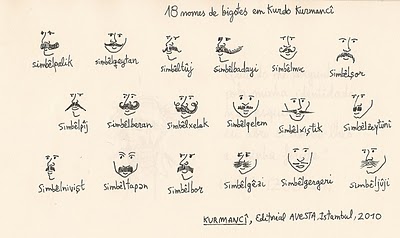 18 nomes de bigotes em Kurdo Kurmancî
simbêlpelik simbêlqeytan simbêltûj simbêlbadayi simbêlmic simbêlşor
simbêlpij simbêlberan simbêlxelak simbêlqelem simbêlxiştik simbêlzeytûnî
simbêlnivişt simbêltapan simbêlbor simbêlgêzi simbêlgergerî simbêljûjî
KURMANCÎ, Editorial AVESTA, Istambul, 2010